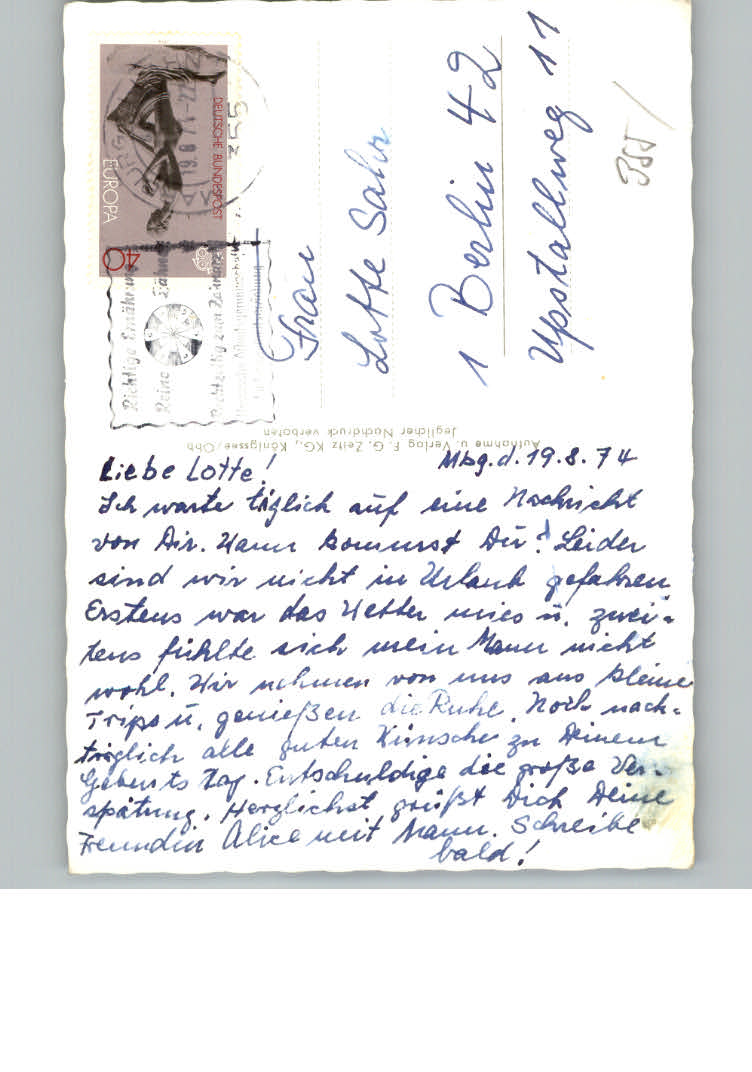 Liebe Lotte!
Mbg. d. 19.8.74
Ich warte täglich auf eine Nachricht
von Dir. Wann kommst Du? Leider
sind wir nicht in Urlaub gefahren
Erstens war das Wetter mies u. zwei-
tens fühlte sich mein Mann nicht
wohl. Wir nehmen von uns aus kleine
Trips u. genießen die Ruhe. Noch nach-
träglich alle guten Wünsche zu Deinem
Geburtstag. Entschuldige die große Ver-
spätung. Herzlichst grüßt Dich Deine
Freundin Alice mit Mann. Schreibe
bald!
Frau
Lotte Sahr
1 Berlin 42
Upstallweg 11
355
DEUTSCHE BUNDESPOST
EUROPA
40
355
19.8.74-22
Richtige Ernährung
Reine Zähne
Rechtzeitig zum Zahnarzt
Aufnahme u. Verlag F. G. Zeitz KG., Königssee/Obb
Jeglicher Nachdruck verboten